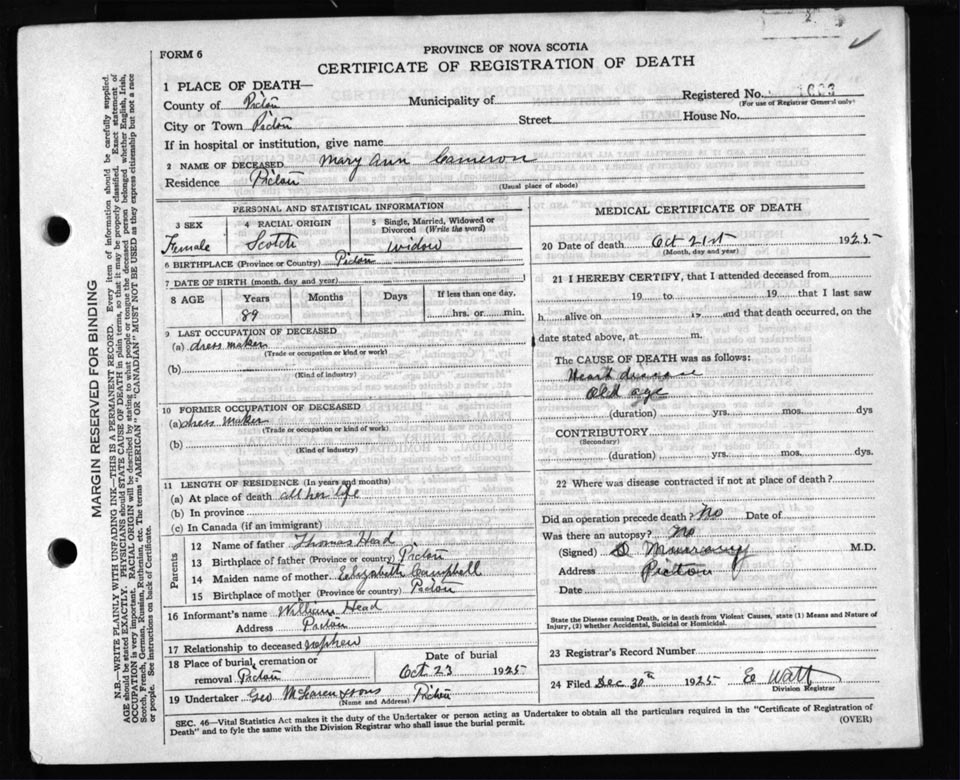 FORM 6
PROVINCE OF NOVA SCOTIA
CERTIFICATE OF REGISTRATION OF DEATH
1 PLACE OF DEATH—
Registered No. 1003
(For use of Registrar General only)
County of Pictou Municipality of
City or Town Pictou Street House No.
If in hospital or institution, give name
2 NAME OF DECEASED Mary Ann Cameron
Residence Pictou
(Usual place of abode)
PERSONAL AND STATISTICAL INFORMATION
3 SEX 4 RACIAL ORIGIN 5 Single, Married, Widowed or Divorced (Write the word)
Female Scotch widow
6 BIRTHPLACE (Province or Country) Pictou
7 DATE OF BIRTH (month, day and year)
8 AGE Years Months Days If less than one day,
89 hrs. or min.
9 LAST OCCUPATION OF DECEASED
(a) dress maker
(Trade or occupation or kind or work)
(b)
(Kind of industry)
10 FORMER OCCUPATION OF DECEASED
(a) dress maker
(Trade or occupation or kind or work)
(b)
(Kind of industry)
11 LENGTH OF RESIDENCE (In years and months)
(a) At place of death all her life
(b) In province
(c) In Canada (if an immigrant)
Parents
12 Name of father Thomas Head
13 Birthplace of father (Province or country) Pictou
14 Maiden name of mother Elizabeth Campbell
15 Birthplace of mother (Province or country) Pictou
16 Informant's name William Head
Address Pictou
17 Relationship to deceased nephew
18 Place of burial, cremation or removal Pictou
Date of burial
Oct 23 1925
19 Undertaker Geo McLaren & sons Pictou
(Name and Address)
MEDICAL CERTIFICATE OF DEATH
20 Date of death Oct 21st 1925
(Month, day and year)
21 I HEREBY CERTIFY, that I attended deceased from
19 to 19 that I last saw
h alive on 19 and that death occurred, on the
date stated above, at m.
The CAUSE OF DEATH was as follows:
Heart disease
Old age
(duration) yrs. mos. dys
CONTRIBUTORY
(Secondary)
(duration) yrs. mos. dys.
22 Where was disease contracted if not at place of death?
Did an operation precede death? No Date of
Was there an autopsy? No
(Signed) M.D.
Address Pictou
Date
State the Disease causing Death, or in death from Violent Causes, state (1) Means and Nature of
Injury, (2) whether Accidental, Suicidal or Homicidal.
23 Registrar's Record Number
24 Filed Dec 30th 1925 E Watt
Division Registrar
SEC. 46—Vital Statistics Act makes it the duty of the Undertaker or person acting as Undertaker to obtain all the particulars required in the "Certificate of Registration of
Death" and to fyle the same with the Division Registrar who shall issue the burial permit.
(OVER)
MARGIN RESERVED FOR BINDING
N.B.—WRITE PLAINLY WITH UNFADING INK—THIS IS A PERMANENT RECORD. Every item of information should be carefully supplied.
AGE should be stated EXACTLY. PHYSICIANS should STATE CAUSE OF DEATH in plain terms, so that it may be properly classified. Exact statement of
OCCUPATION is very important. RACIAL ORIGIN will be described by stating to what people or tongue the deceased person belonged whether English, Irish,
Scotch, French, German, Russian, Ruthenian, etc. The terms "AMERICAN" or "CANADIAN" MUST NOT BE USED as they express citizenship but not a race
or people. See instructions on back of Certificate.